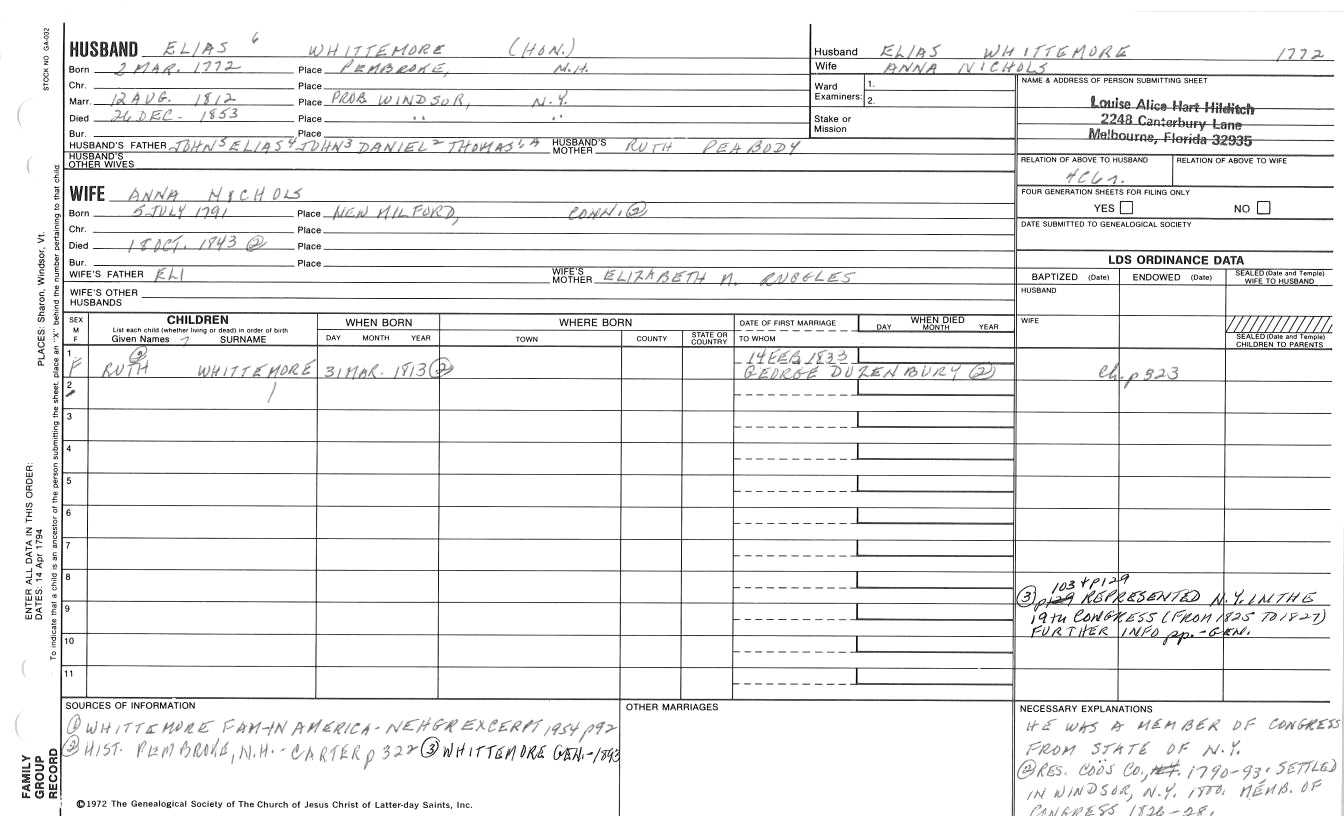 STOCK NO GA-032
HUSBAND ELIAS 6 WHITTEMORE (HON.)
Born 2 MAR. 1772 Place PEMBROKE, N.H.
Chr. Place
Marr. 12 AUG. 1812 Place PROB WINDSOR, N.Y.
Died 26 DEC. 1853 Place " "
Bur. Place
HUSBAND'S FATHER JOHN 5 ELIAS 4 JOHN 3 DANIEL 2 THOMAS 1, A HUSBAND'S MOTHER RUTH PEABODY
HUSBAND'S OTHER WIVES
Husband ELIAS WHITTEMORE 1772
Wife ANNA NICHOLS
Ward Examiners: 1.
2.
Stake or Mission
NAME & ADDRESS OF PERSON SUBMITTING SHEET
Louise Alice Hart Hilditch
2248 Canterbury Lane
Melbourne, Florida 32935
RELATION OF ABOVE TO HUSBAND RELATION OF ABOVE TO WIFE
4C6r.
FOUR GENERATION SHEETS FOR FILING ONLY
YES NO
DATE SUBMITTED TO GENEALOGICAL SOCIETY
WIFE ANNA NICHOLS
Born 5 JULY 1791 Place NEW MILFORD, CONN. ②
Chr. Place
Died 18 OCT. 1843 ② Place
Bur. Place
WIFE'S FATHER ELI WIFE'S MOTHER ELIZABETH N. RUGGLES
WIFE'S OTHER HUSBANDS
LDS ORDINANCE DATA
BAPTIZED (Date) ENDOWED (Date) SEALED (Date and Temple) WIFE TO HUSBAND
HUSBAND
WIFE
SEALED (Date and Temple) CHILDREN TO PARENTS
SEX M F
CHILDREN
List each child (whether living or dead) in order of birth
Given Names 7 SURNAME
WHEN BORN
DAY MONTH YEAR
WHERE BORN
TOWN COUNTY STATE OR COUNTRY
DATE OF FIRST MARRIAGE
TO WHOM
WHEN DIED
DAY MONTH YEAR
1 ② 14 FEB 1833
F RUTH WHITTEMORE 31 MAR. 1813 ② GEORGE DUZENBURY ② Ch. p 323
2
3
4
5
6
7
8
9
10
11
103 + p129
③ p129 REPRESENTED N.Y. IN THE
19TH CONGRESS (FROM 1825 TO 1827)
FURTHER INFO pp. - GEN.
SOURCES OF INFORMATION
① WHITTEMORE FAM-IN AMERICA - NEHGR EXCERPT, 1954 p92
② HIST. PEMBROKE, N.H. - CARTER p 322 ③ WHITTEMORE GEN. - 1893
OTHER MARRIAGES
NECESSARY EXPLANATIONS
HE WAS A MEMBER OF CONGRESS
FROM STATE OF N.Y.
② RES. COÖS CO., 1790-93. SETTLED
IN WINDSOR, N.Y. 1800. MEMB. OF
CONGRESS 1826-28.
©1972 The Genealogical Society of The Church of Jesus Christ of Latter-day Saints, Inc.
FAMILY
GROUP
RECORD
ENTER ALL DATA IN THIS ORDER:
DATES: 14 Apr 1794
PLACES: Sharon, Windsor, Vt.
To indicate that a child is an ancestor of the person submitting the sheet, place an "X" behind the number pertaining to that child